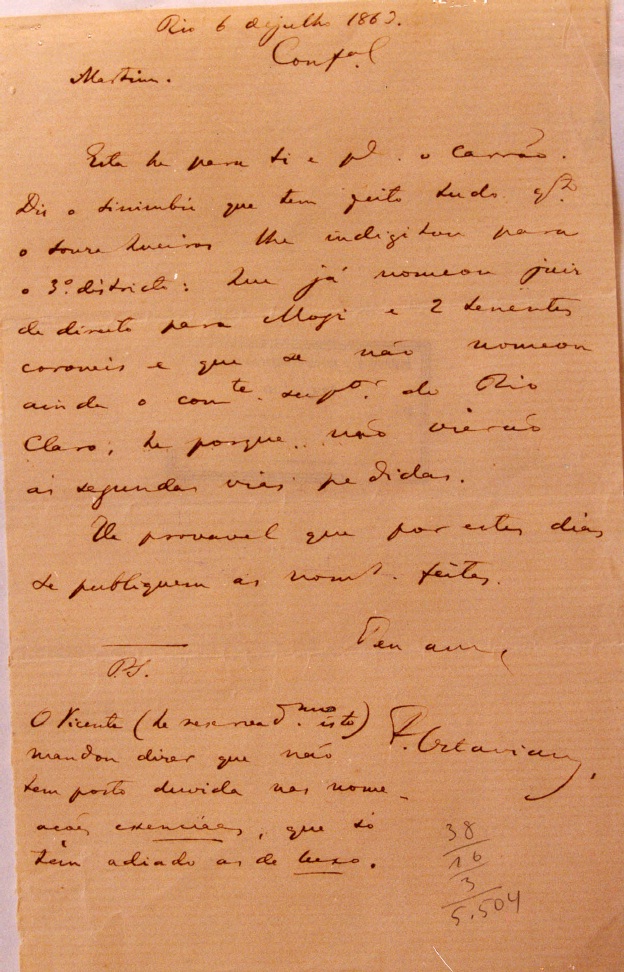 Rio 6 de julho 1863.
Confal
Martim.
Esta he para ti e pa. o Carrão.
Diz o Sinimbú que tem feito tudo qto
o Souza Queiros lhe indigitou para
o 3º districto: que já nomeou juiz
de direito para Mogi e 2 tenentes
coroneis e que se não nomeou
ainda o comte. supor. do Rio
Claro, he porque não vierão
as segundas vias pedidas.
He provavel que por estes dias
se publiquem as nomes. feitas.
Teu am
P.S.
O Vicente (he reservadmo. isto)
mandou dizer que não
tem posto duvida nas nome-
ações essenciaes, que só
têm adiado as de luxo.
F. Octaviano.
38
16
3
5.504